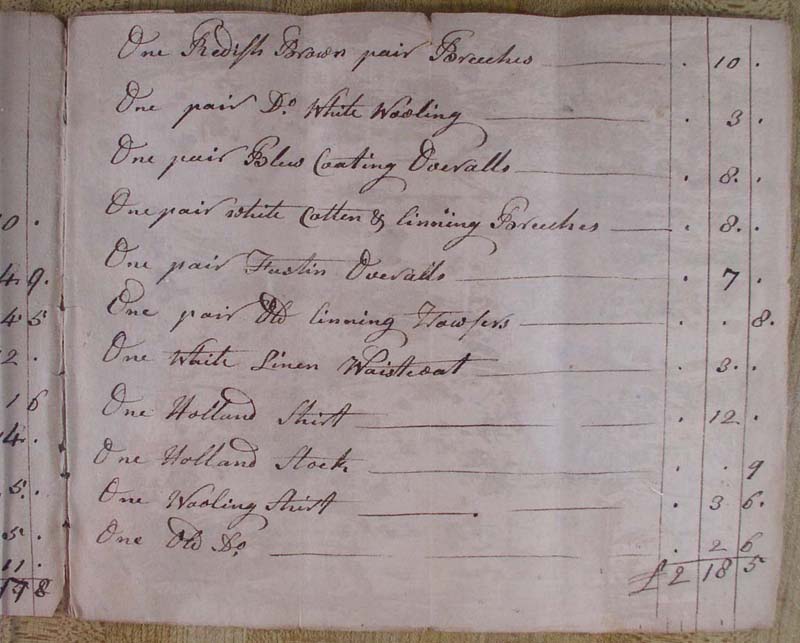 0 .
4 9 .
4 5
2 .
1 6
4 .
5 .
5 .
11 .
17 8
One Redish Brown pair Breeches . 10 .
One pair Do. White Wooling . 3 .
One pair Blew Coating Overalls . 8 .
One pair white Cotten & linning Breeches . 8 .
One pair Fustin Overalls . 7 .
One pair Old linning Trowsers . . 8 .
One White Linen Waistcoat . 3 .
One Holland Shirt . 12 .
One Holland Stock . . 9
One Wooling Shirt . 3 6 .
One Old Do. . 2 6
£ 2 18 5